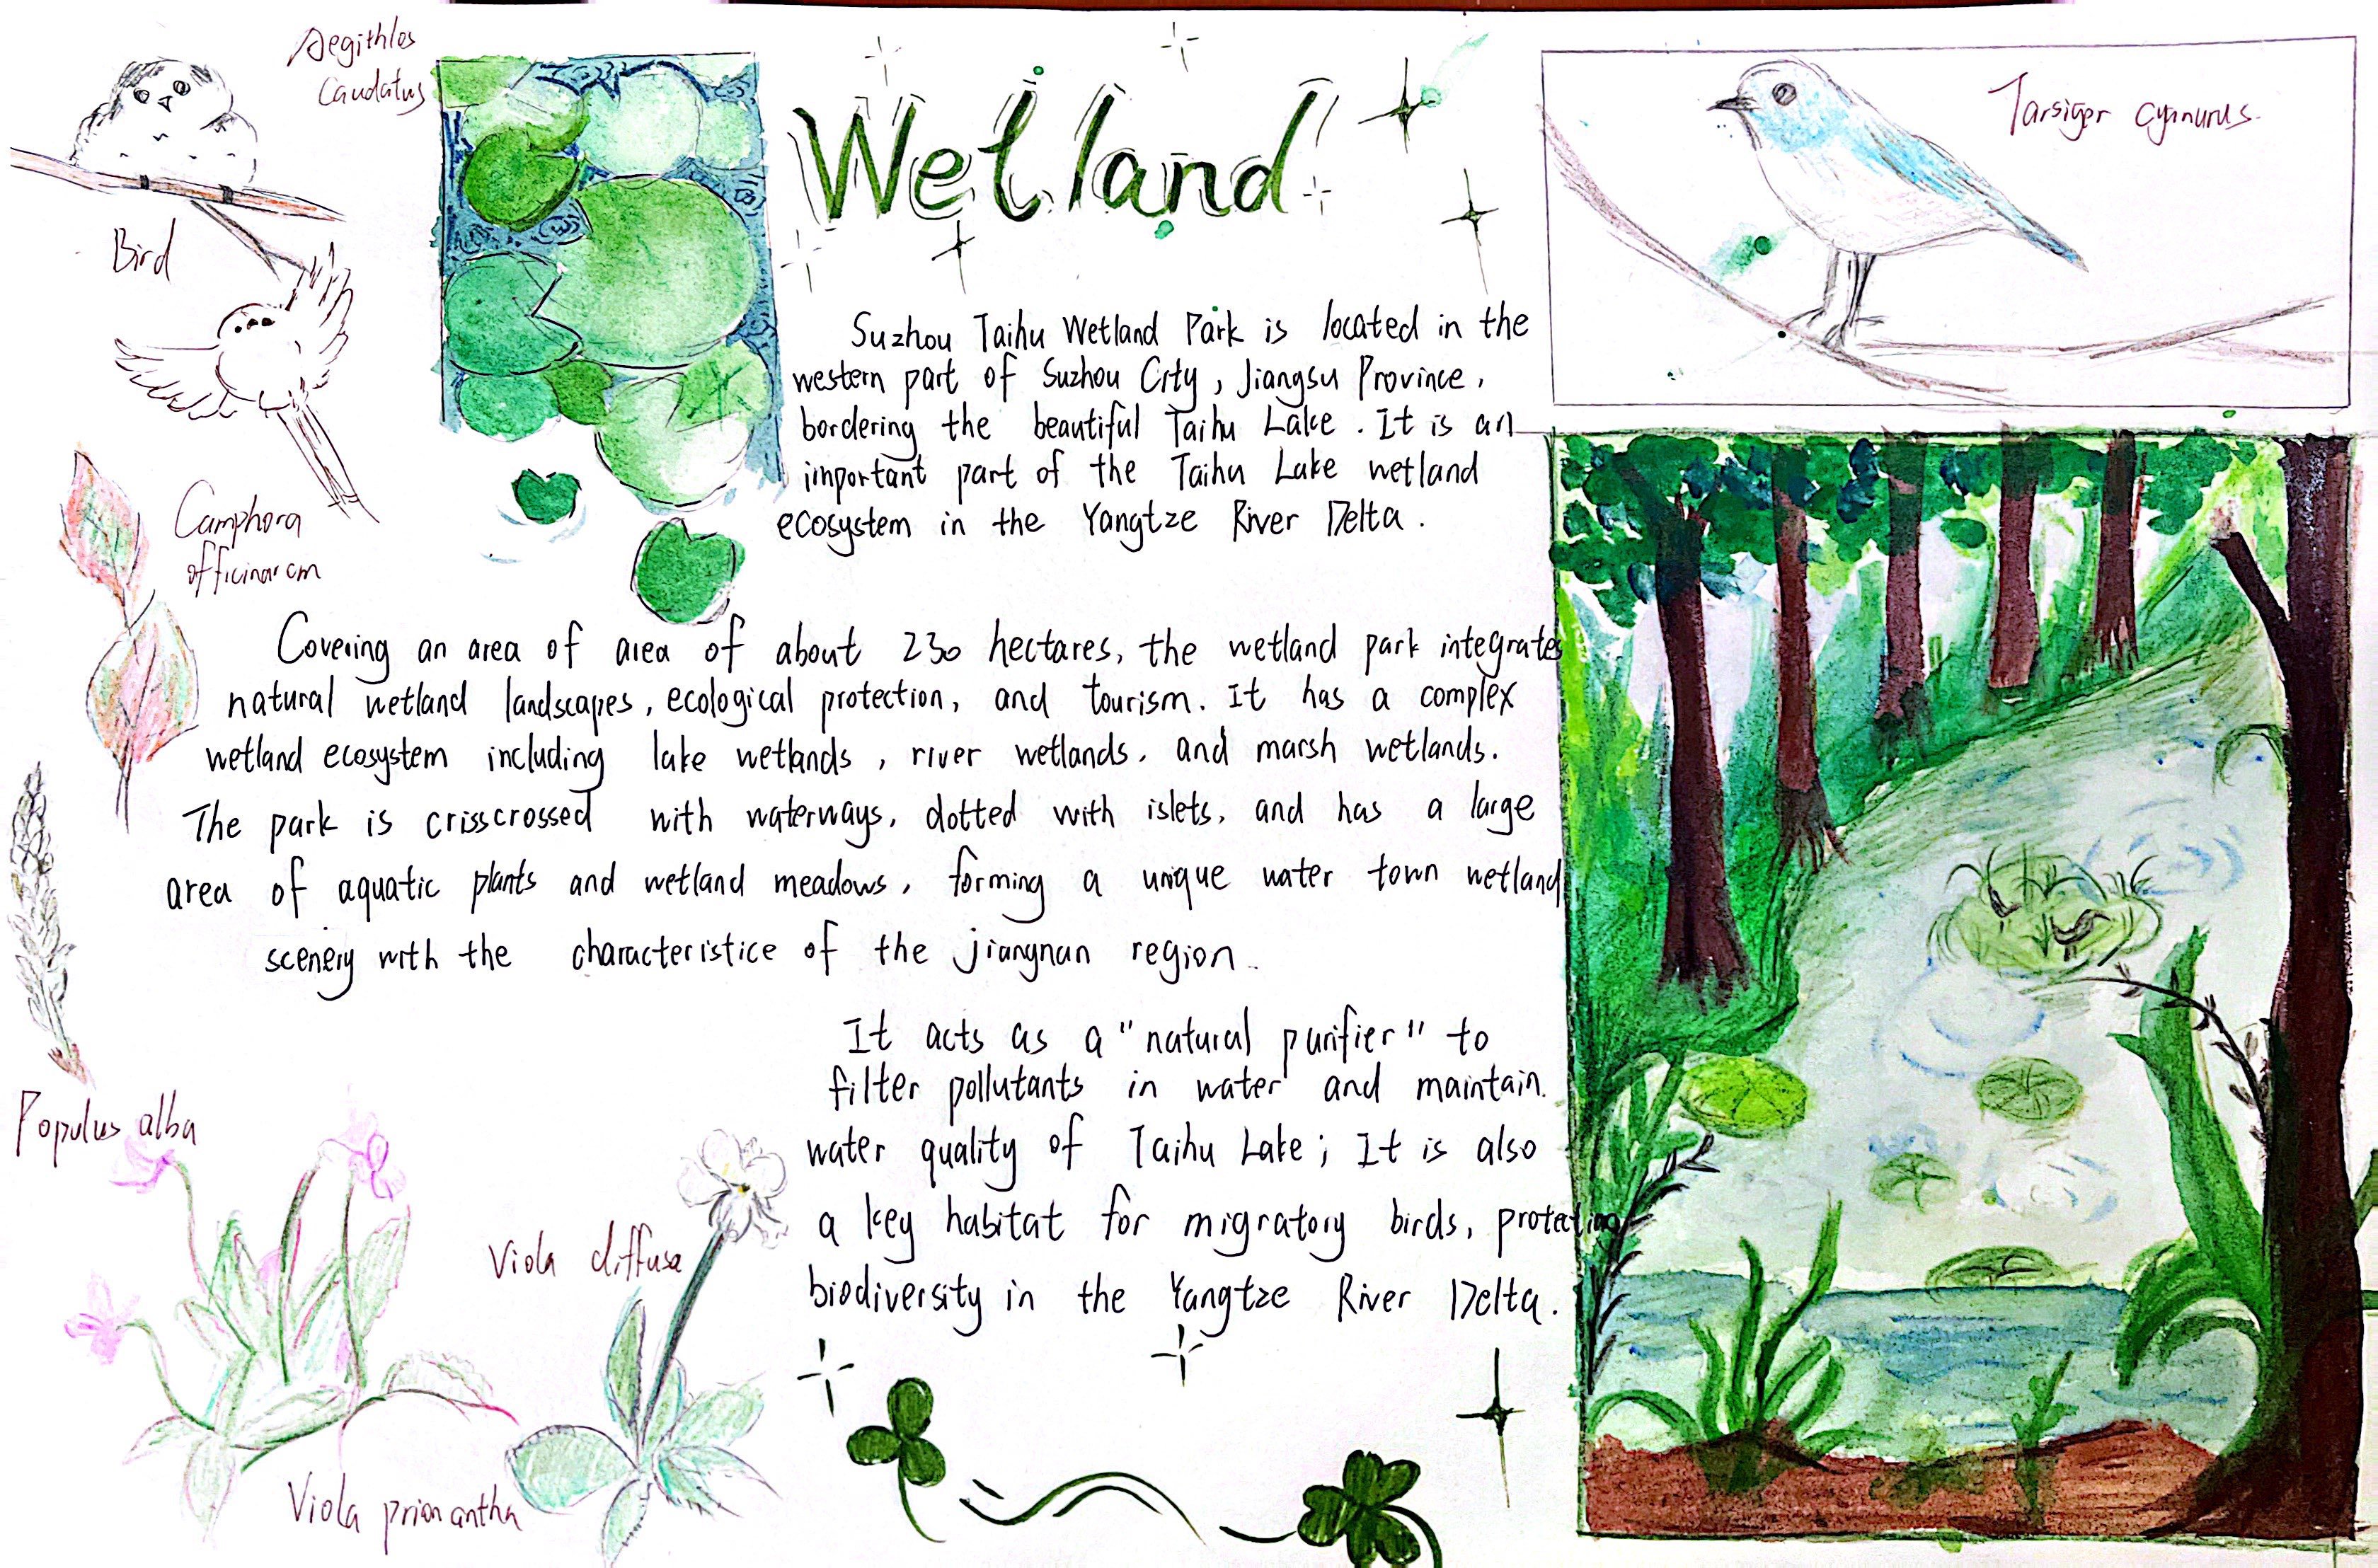 Aegithlos
Caudatus
Bird
Wetland
Tarsiger cyanurus
Suzhou Taihu Wetland Park is located in the
western part of Suzhou City, Jiangsu Province,
bordering the beautiful Taihu Lake. It is an
important part of the Taihu Lake wetland
ecosystem in the Yangtze River Delta.
Camphora
officinarum
Covering an area of area of about 230 hectares, the wetland park integrates
natural wetland landscapes, ecological protection, and tourism. It has a complex
wetland ecosystem including lake wetlands, river wetlands, and marsh wetlands.
The park is crisscrossed with waterways, dotted with islets, and has a large
area of aquatic plants and wetland meadows, forming a unique water town wetland
scenery with the characteristice of the jiangnan region.
It acts as a "natural purifier" to
filter pollutants in water and maintain
water quality of Taihu Lake; It is also
a key habitat for migratory birds, protecting
biodiversity in the Yangtze River Delta.
Populus alba
Viola diffusa
Viola prionantha